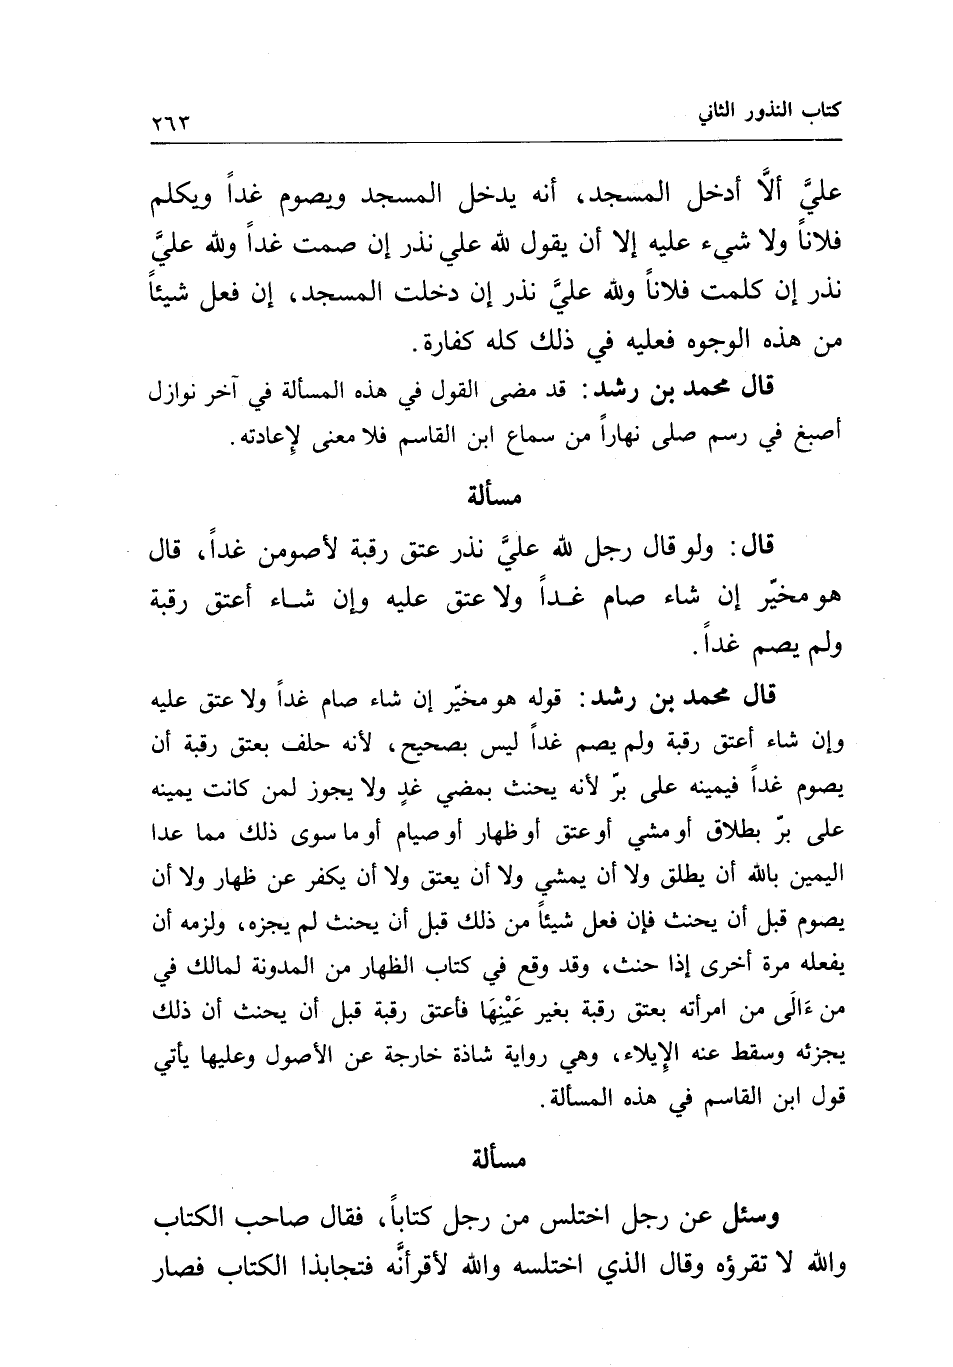 كتاب النذور الثاني
٢٦٣
عليَّ ألَّا أدخل المسجد، أنه يدخل المسجد ويصوم غداً ويكلم
فلاناً ولا شيء عليه إلا أن يقول لله علي نذر إن صمت غداً ولله عليَّ
نذر إن كلمت فلاناً ولله عليَّ نذر إن دخلت المسجد، إن فعل شيئاً
من هذه الوجوه فعليه في ذلك كله كفارة.
قال محمد بن رشد: قد مضى القول في هذه المسألة في آخر نوازل
أصبغ في رسم صلى نهاراً من سماع ابن القاسم فلا معنى لإعادته.
مسألة
قال: ولو قال رجل لله عليَّ نذر عتق رقبة لأصومن غداً، قال
هو مخيّر إن شاء صام غداً ولا عتق عليه وإن شاء أعتق رقبة
ولم يصم غداً.
قال محمد بن رشد: قوله هو مخيّر إن شاء صام غداً ولا عتق عليه
وإن شاء أعتق رقبة ولم يصم غداً ليس بصحيح، لأنه حلف بعتق رقبة أن
يصوم غداً فيمينه على برّ لأنه يحنث بمضي غدٍ ولا يجوز لمن كانت يمينه
على برّ بطلاق أو مشي أو عتق أو ظهار أو صيام أو ما سوى ذلك مما عدا
اليمين بالله أن يطلق ولا أن يمشي ولا أن يعتق ولا أن يكفر عن ظهار ولا أن
يصوم قبل أن يحنث فإن فعل شيئاً من ذلك قبل أن يحنث لم يجزه، ولزمه أن
يفعله مرة أخرى إذا حنث، وقد وقع في كتاب الظهار من المدونة لمالك في
من ءَالَى من امرأته بعتق رقبة بغير عَيْنِهَا فأعتق رقبة قبل أن يحنث أن ذلك
يجزئه وسقط عنه الإيلاء، وهي رواية شاذة خارجة عن الأصول وعليها يأتي
قول ابن القاسم في هذه المسألة.
مسألة
وسئل عن رجل اختلس من رجل كتاباً، فقال صاحب الكتاب
والله لا تقرؤه وقال الذي اختلسه والله لأقرأنَّه فتجابذا الكتاب فصار